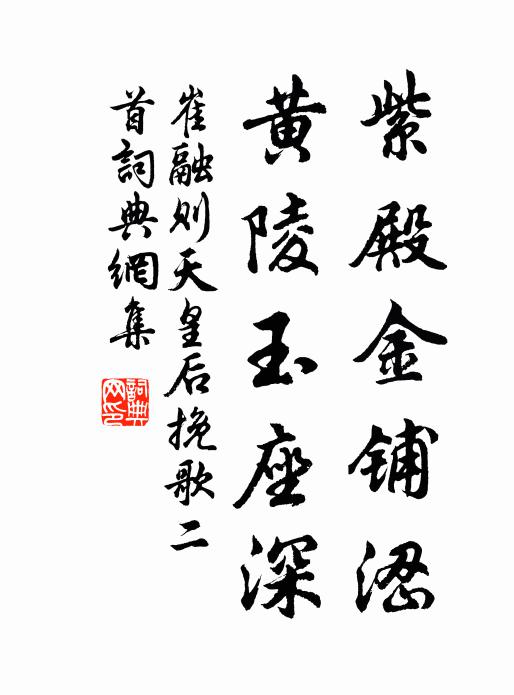 紫殿金鋪澀
黃陵玉座深
崔融则天皇后挽歌二
首詞典網集
詞典网印